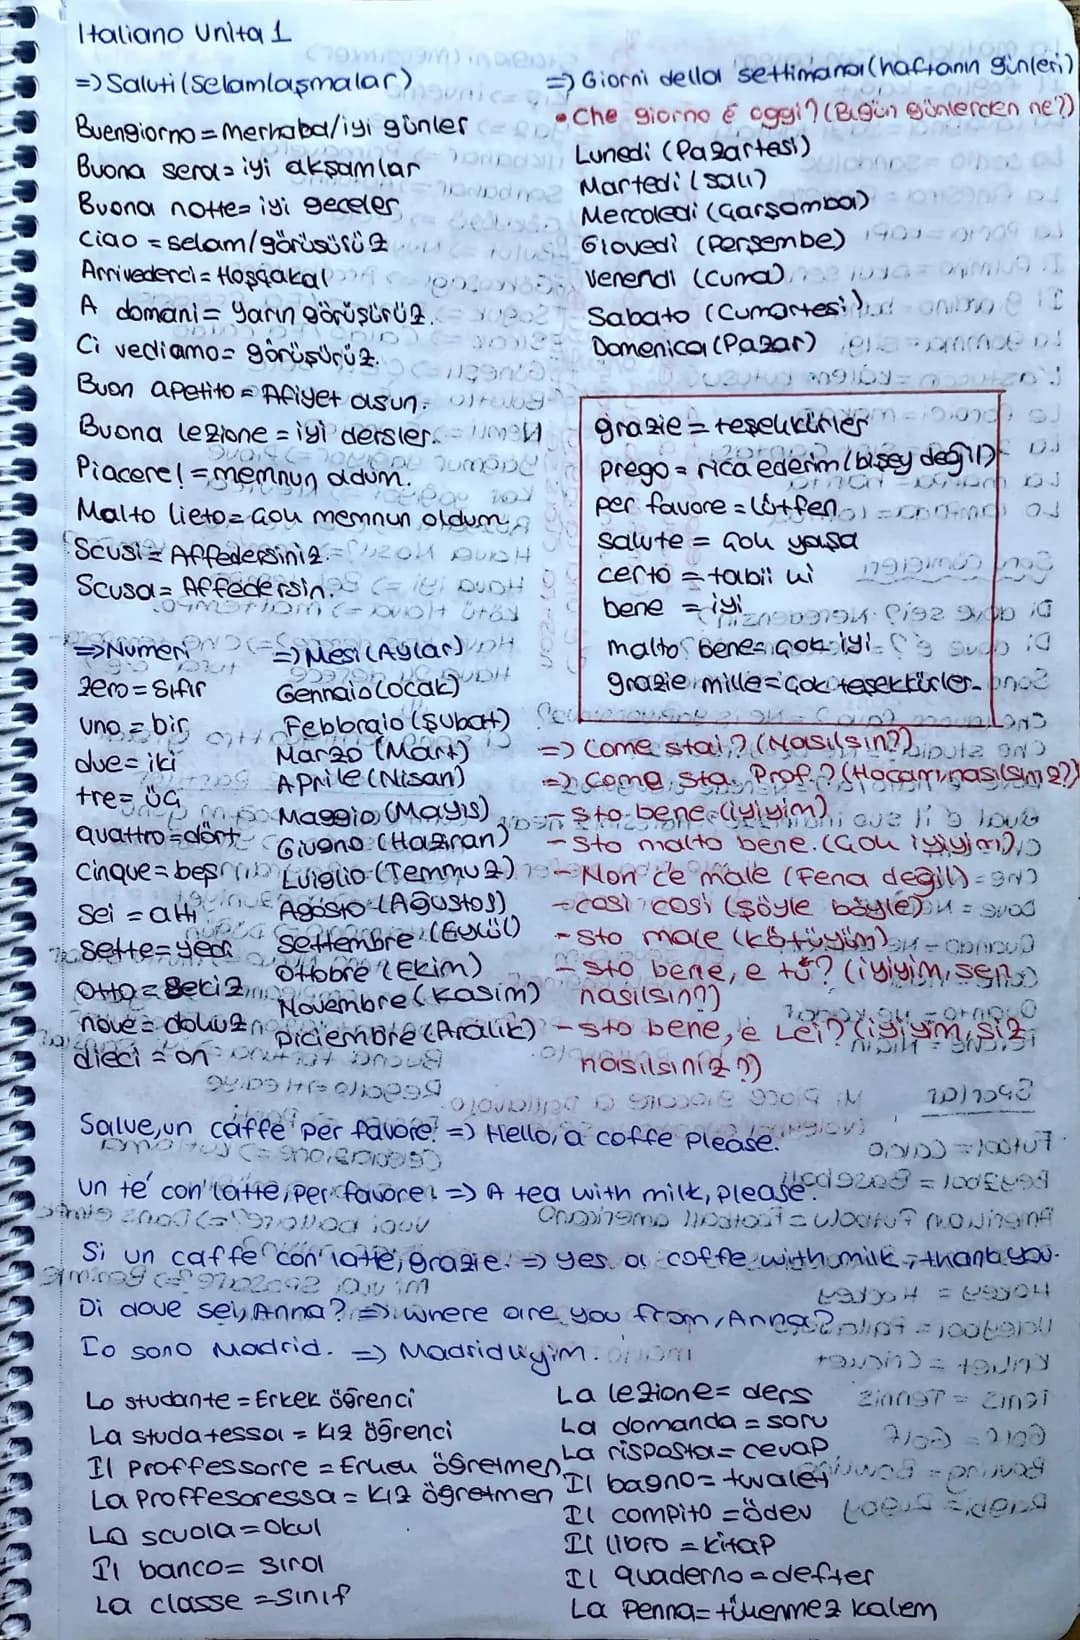 Italiano Unita 1
=> Saluti (Selamlaşmalar)
Buengiorno = Merhaba/iyi günler
Buona sera = iyi akşamlar
Buona notte = iyi geceler
Ciao = selam/görüşürüz
Arrivederci = Hoşçakal
A domani = Yarın görüşürüz.
Ci vediamo = görüşürüz.
Buon apetito = Afiyet olsun.
Buona lezione = iyi dersler.
Piacere! = memnun oldum.
Malto lieto = Çok memnun oldum
Scusi = Affedersiniz.
Scusa = Affedersin.
=> Giorni della settimana (haftanın günleri)
• Che giorno é oggi? (Bugün günlerden ne?)
Lunedi (Pazartesi)
Martedi (Salı)
Mercoledi (Çarşamba)
Giovedi (Perşembe)
Venerdi (Cuma)
Sabato (Cumartesi)
Domenica (Pazar)
grazie = teşekkürler
prego = rica ederim (bişey değil)
per favore = Lütfen
Salute = Çok yaşa
certo = tabii ki
bene = iyi
malto bene = çok iyi
grazie mille = çok teşekkürler
=> Numeri
zero = sıfır
uno = bir
due = iki
tre = üç
quattro = dört
cinque = beş
Sei = altı
Sette = yedi
Otto = Sekiz
nove = dokuz
dieci = on
=> Mesi (Aylar)
Gennaio (ocak)
Febbraio (şubat)
Marzo (Mart)
Aprile (Nisan)
Maggio (Mayıs)
Giugno (Haziran)
Luiglio (Temmuz)
Agosto (Ağustos)
Settembre (Eylül)
Ottobre (Ekim)
Novembre (Kasım)
Diciembre (Aralık)
=> Come stai? (Nasılsın?)
=> Come sta Prof.? (Hocam nasılsınız?)
- Sto bene (iyiyim)
- Sto malto bene. (Çok iyiyim)
- Non c'e male (Fena değil)
- cosi cosi (şöyle böyle)
- Sto male (kötüyüm)
- Sto bene, e tú? (iyiyim, sen
nasılsın?)
- Sto bene, e Lei? (iyiyim, siz
nasılsınız?)
Salve, un caffe per favore! => Hello, a coffe please.
Un té con latte, per favore! => A tea with milk, please.
Si un caffe con latte, grazie. => yes a coffe with milk, thank you.
Di dove sei, Anna? => where are you from, Anna?
Io sono Madrid. => Madridliyim.
Lo studante = Erkek öğrenci
La studatessa = kız öğrenci
Il Proffessorre = Erkek öğretmen
La Proffesoressa = kız öğretmen
La scuola = okul
Il banco = sıra
La classe = sınıf
La lezione = ders
La domanda = soru
La risposta = cevap
Il bagno = tuvalet
Il compito = ödev
Il libro = kitap
Il quaderno = defter
La Penna = tükenmez kalem